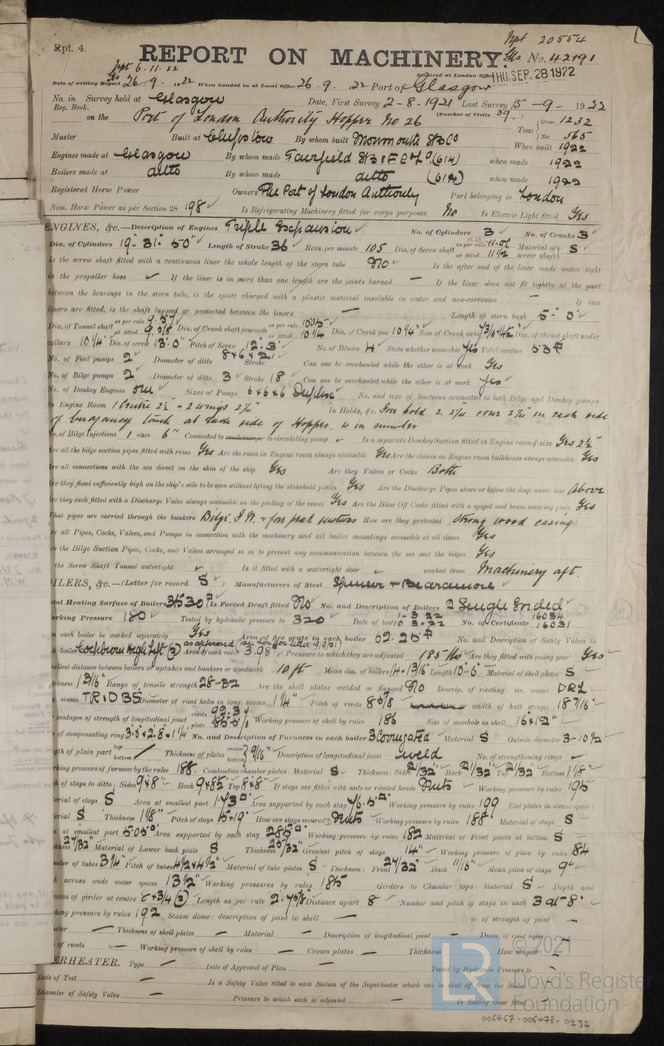 Rpt. 4.
Rpt 20554
REPORT ON MACHINERY.
Gls No. 42191
Rpt 6.11.22
Received at London Office THU. SEP. 28 1922
Date of writing Report 26-9-1922 When handed in at Local Office 26.9.1922 Port of Glasgow
No. in Survey held at Glasgow Date, First Survey 2-8-1921 Last Survey 15-9-1922
Reg. Book. (Number of Visits 39)
on the Port of London Authority Hopper No 26 Tons Gross 1232
Net 565
Master Built at Chepstow By whom built Monmouth SB Co When built 1922
Engines made at Glasgow By whom made Fairfield SB & E Co Ld (614) when made 1922
Boilers made at ditto By whom made ditto (614) when made 1922
Registered Horse Power Owners The Port of London Authority Port belonging to London
Nom. Horse Power as per Section 28 198 Is Refrigerating Machinery fitted for cargo purposes No Is Electric Light fitted Yes
ENGINES, &c.—Description of Engines Triple Expansion No. of Cylinders 3 No. of Cranks 3
Dia. of Cylinders 19"-31"-50" Length of Stroke 36 Revs. per minute 105 Dia. of Screw shaft as per rule as fitted 11 1/2 Material of screw shaft S
Is the screw shaft fitted with a continuous liner the whole length of the stern tube No Is the after end of the liner made water tight
in the propeller boss If the liner is in more than one length are the joints burned If the liner does not fit tightly at the part
between the bearings in the stern tube, is the space charged with a plastic material insoluble in water and non-corrosive If two
liners are fitted, is the shaft lapped or protected between the liners Length of stern bush 5-0"
Dia. of Tunnel shaft as per rule as fitted Dia. of Crank shaft journals as per rule as fitted 10 1/4 Dia. of Crank pin 10 1/4" Size of Crank webs Dia. of thrust shaft under
collars 10 1/4" Dia. of screw 13-0" Pitch of Screw 12-3 No. of Blades 4 State whether moveable Yes Total surface 53
No. of Feed pumps 2 Diameter of ditto Stroke Can one be overhauled while the other is at work Yes
No. of Bilge pumps 2 Diameter of ditto 3 Stroke 18 Can one be overhauled while the other is at work Yes
No. of Donkey Engines one Sizes of Pumps 6×6×6 Duplex No. and size of Suctions connected to both Bilge and Donkey pumps
In Engine Room 1 Centre 2 1/2 - 2 wings 2 1/2" In Holds, &c. In hold 2 2 1/2 one 2 1/2 in each side
of buoyancy tank at each side of Hopper, 4 in number
No. of Bilge Injections 1 sizes 6" Connected to condenser, or to circulating pump Is a separate Donkey Suction fitted in Engine room & size Yes 2 1/2
Are all the bilge suction pipes fitted with roses Yes Are the roses in Engine room always accessible Yes Are the sluices on Engine room bulkheads always accessible Yes
Are all connections with the sea direct on the skin of the ship Yes Are they Valves or Cocks Both
Are they fixed sufficiently high on the ship's side to be seen without lifting the stokehold plates Yes Are the Discharge Pipes above or below the deep water line Above
Are they each fitted with a Discharge Valve always accessible on the plating of the vessel Yes Are the Blow Off Cocks fitted with a spigot and brass covering plate Yes
What pipes are carried through the bunkers Bilge, I.W. & fore peak suctions How are they protected strong wood casing
Are all Pipes, Cocks, Valves, and Pumps in connection with the machinery and all boiler mountings accessible at all times Yes
Are the Bilge Suction Pipes, Cocks, and Valves arranged so as to prevent any communication between the sea and the bilges Yes
Is the Screw Shaft Tunnel watertight Is it fitted with a watertight door worked from Machinery aft.
BOILERS, &c.—(Letter for record S) Manufacturers of Steel Spencer & Beardmore
Total Heating Surface of Boilers 3530 Is Forced Draft fitted No No. and Description of Boilers 2 Single Ended
Working Pressure 180 Tested by hydraulic pressure to 320 Date of test 1-3-22 10-3-22 No. of Certificate 16034 16031
Can each boiler be worked separately Yes Area of fire grate in each boiler 62.25 No. and Description of Safety Valves to
each boiler Cockburn High Lift (2) Area of each valve 3.98 Pressure to which they are adjusted 185 lbs Are they fitted with easing gear Yes
Smallest distance between boilers or uptakes and bunkers or woodwork 10 ft Mean dia. of boilers 14-1 3/16 Length 10-6" Material of shell plates S
Thickness 1 3/16" Range of tensile strength 28-32 Are the shell plates welded or flanged No Descrip. of riveting: cir. seams D R L
long. seams T R I D B S Diameter of rivet holes in long. seams 1 1/4" Pitch of rivets 8 5/8 Lap of plates or width of butt straps 18 7/16"
Percentages of strength of longitudinal joint rivets 92.3 plate 85.5 Working pressure of shell by rules 186 Size of manhole in shell 16×12"
Size of compensating ring No. and Description of Furnaces in each boiler 3 Corrugated Material S Outside diameter 3-10 1/2
Length of plain part top bottom Thickness of plates crown bottom 9/16" Description of longitudinal joint weld No. of strengthening rings
Working pressure of furnace by the rules 188 Combustion chamber plates: Material S Thickness: Sides 21/32" Back 21/32" Top 21/32" Bottom 1 1/8"
Pitch of stays to ditto: Sides 9×8" Back Top If stays are fitted with nuts or riveted heads Nuts Working pressure by rules 195
Material of stays S Area at smallest part 1.73 Area supported by each stay 76.5 Working pressure by rules 199 End plates in steam space:
Material S Thickness 1 1/8" Pitch of stays 15×19" How are stays secured Nuts Working pressure by rules 188 Material of stays S
Area at smallest part 5.05 Area supported by each stay 285 Working pressure by rules 182 Material of Front plates at bottom S
Thickness 27/32" Material of Lower back plate S Thickness 25/32" Greatest pitch of stays 14" Working pressure of plate by rules 184
Diameter of tubes 3 1/4 Pitch of tubes 4 1/2×4 1/2" Material of tube plates S Thickness: Front 27/32" Back 11/16" Mean pitch of stays 9"
Pitch across wide water spaces 13 1/2" Working pressures by rules 185 Girders to Chamber tops: Material S Depth and
thickness of girder at centre Length as per rule Distance apart 8 Number and pitch of stays in each 3 at 8"
Working pressure by rules 192 Steam dome: description of joint to shell % of strength of joint
Diameter Thickness of shell plates Material Description of longitudinal joint Diam. of rivet holes
Pitch of rivets Working pressure of shell by rules Crown plates Thickness How stayed
SUPERHEATER. Type Date of Approval of Plan Tested by Hydraulic Pressure to
Date of Test Is a Safety Valve fitted to each Section of the Superheater which can be shut off from the Boiler
Diameter of Safety Valve Pressure to which each is adjusted Is Easing Gear fitted
© 2021
Lloyd's Register
Foundation
LR
006467-006478-0232